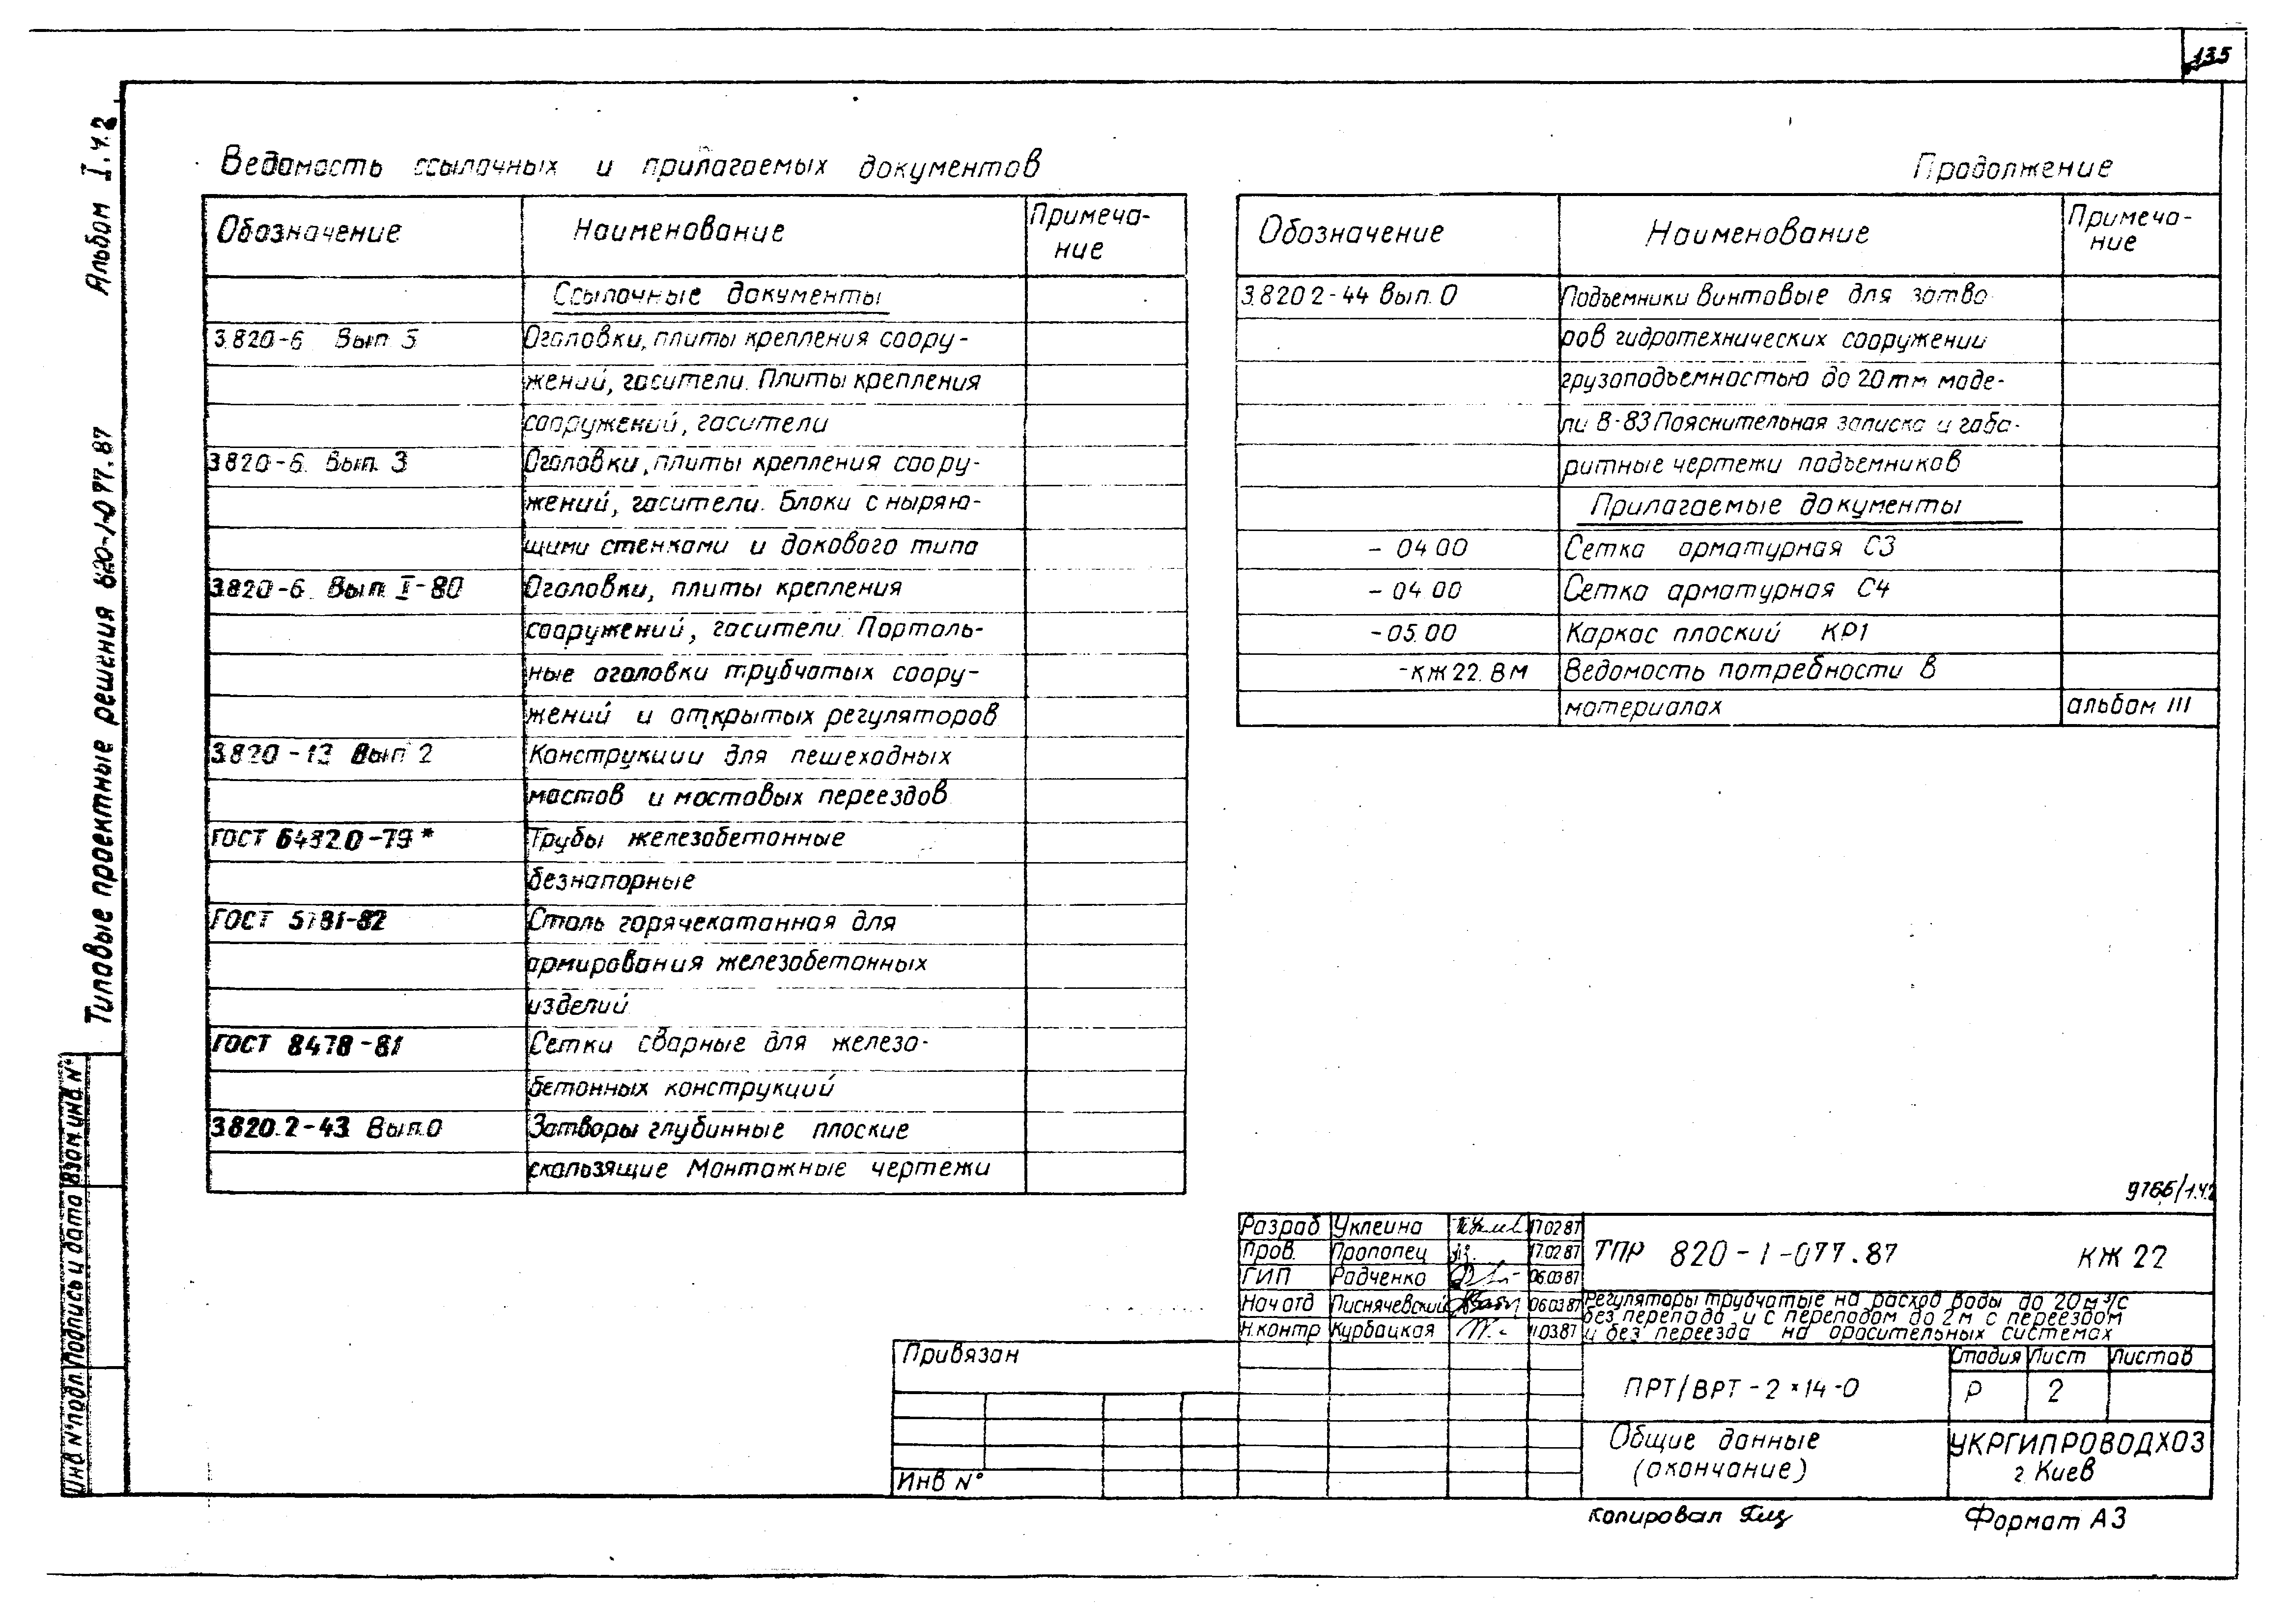 135
Альбом I.ч.2
Типовые проектные решения 820-1-077.87
Ведомость ссылочных и прилагаемых документов
Обозначение Наименование Примеча-
ние
Ссылочные документы
3.820-6 Вып 5 Оголовки, плиты крепления соору-
жений, гасители. Плиты крепления
сооружений, гасители
3.820-6. Вып. 3 Оголовки, плиты крепления соору-
жений, гасители. Блоки с ныряю-
щими стенками и докового типа
3.820-6. Вып. I-80 Оголовки, плиты крепления
сооружений, гасители. Порталь-
ные оголовки трубчатых соору-
жений и открытых регуляторов
3.820-13 Вып 2 Конструкции для пешеходных
мостов и мостовых переездов
ГОСТ 6482.0-79* Трубы железобетонные
безнапорные
ГОСТ 5781-82 Сталь горячекатанная для
армирования железобетонных
изделий
ГОСТ 8478-81 Сетки сварные для железо-
бетонных конструкций
3.820.2-43 Вып.0 Затворы глубинные плоские
скользящие Монтажные чертежи
Продолжение
Обозначение Наименование Примеча-
ние
3.820 2-44 Вып. 0 Подъемники винтовые для затво
ров гидротехнических сооружении
грузоподъемностью до 20тм моде-
ли В-83 Пояснительная записка и габа-
ритные чертежи подъемников
Прилагаемые документы
- 04 00 Сетка арматурная С3
- 04 00 Сетка арматурная С4
-05.00 Каркас плоский КР1
-КЖ22.ВМ Ведомость потребности в
материалах альбом III
9766/1.ч.2
Разраб Уклеина 17.02 87
Пров. Прополец 17.02 87
ГИП Радченко 06.03 87
Нач отд Писнячевский 06.03 87
Н.контр Курбацкая 11.03.87
ТПР 820-1-077.87 КЖ 22
Регуляторы трубчатые на расход воды до 20м³/с
без перепада и с перепадом до 2м с переездом
и без переезда на оросительных системах
Привязан
Инв N°
ПРТ/ВРТ-2×14-0
Стадия Лист Листов
Р 2
Общие данные
(окончание)
УКРГИПРОВОДХОЗ
г. Киев
Копировал
Формат А3
Инв N°подл. Подпись и дата Взам инв N°